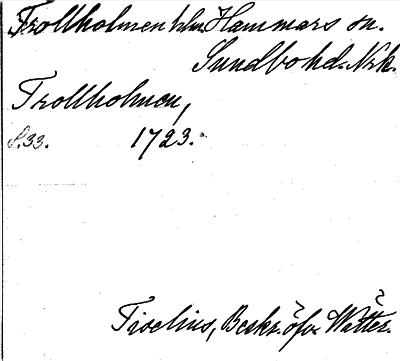 Trollholmen hlm Hammars sn.
Sundbo hd. Nrk.
Trollholmen,
S. 33. 1723.
Tiselius, Beskr. öfv. Wätter.